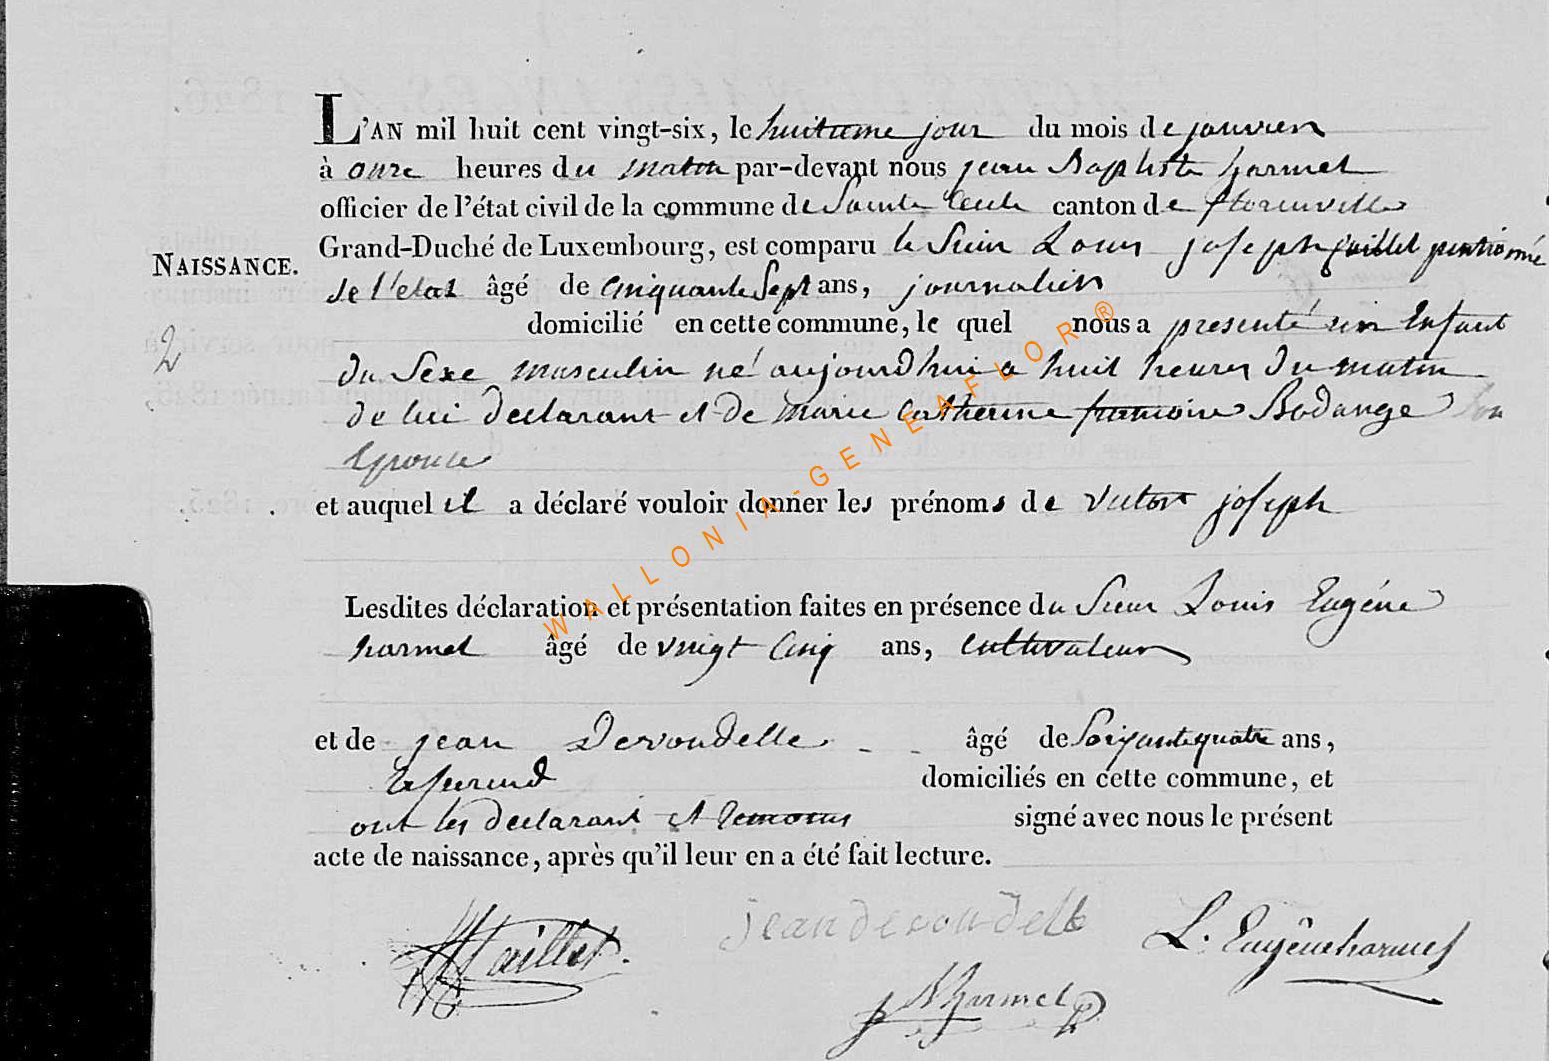 L'AN mil huit cent vingt-six, le huitieme jour du mois de janvier
à onze heures du matin par-devant nous jean Baptiste harmel
officier de l'état civil de la commune de Sainte Cecile canton de florenville
Grand-Duché de Luxembourg, est comparu le Sieur Louis joseph pensionné
NAISSANCE.
de l'etat âgé de cinquante Sept ans, journalier
domicilié en cette commune, le quel nous a presenté un Enfant
2
du Sexe masculin né aujourd'hui a huit heures du matin
de lui declarant et de marie catherine Bodange Son
Epouse
et auquel il a déclaré vouloir donner les prénoms de victor joseph
Lesdites déclaration et présentation faites en présence du Sieur Louis Eugéne
harmel âgé de vingt Cinq ans, cultivateur
et de jean Devoudelle âgé de Soixante quatre ans,
domiciliés en cette commune, et
ont les declarant et temoins signé avec nous le présent
acte de naissance, après qu'il leur en a été fait lecture.
jean devoudelle
L. Eugêne harmel
JB harmel
WALLONIA-GENEAFLOR®